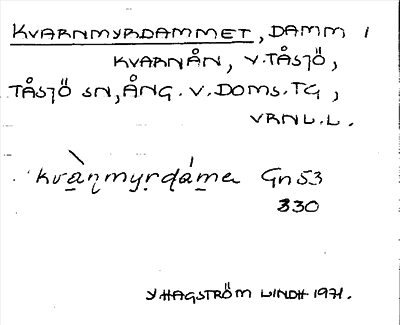 KVARNMYRDAMMET, DAMM I
KVARNÅN, V. TÅSJÖ,
TÅSJÖ SN, ÅNG. V. DOMS. TG,
VRNL.L.
kvàn̥myrdáme Gn 53
330
Y HAGSTRÖM LINDH 1971.